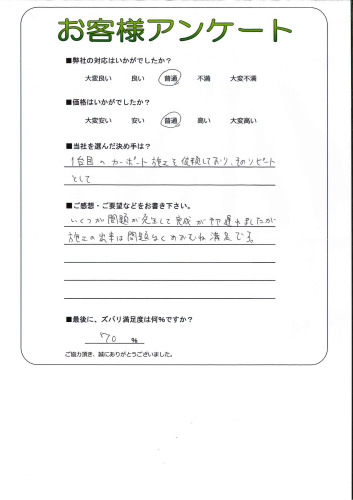 お客様アンケート
■弊社の対応はいかがでしたか?
大変良い 良い 普通 不満 大変不満
■価格はいかがでしたか?
大変安い 安い 普通 高い 大変高い
■当社を選んだ決め手は?
1台目のカーポート施工を依頼しており、そのリピート
として
■ご感想・ご要望などをお書き下さい。
いくつか問題が発生して完成がやや遅れましたが
施工の出来は問題なくおおむね満足です。
■最後に、ズバリ満足度は何%ですか?
70 %
ご協力頂き、誠にありがとうございました。